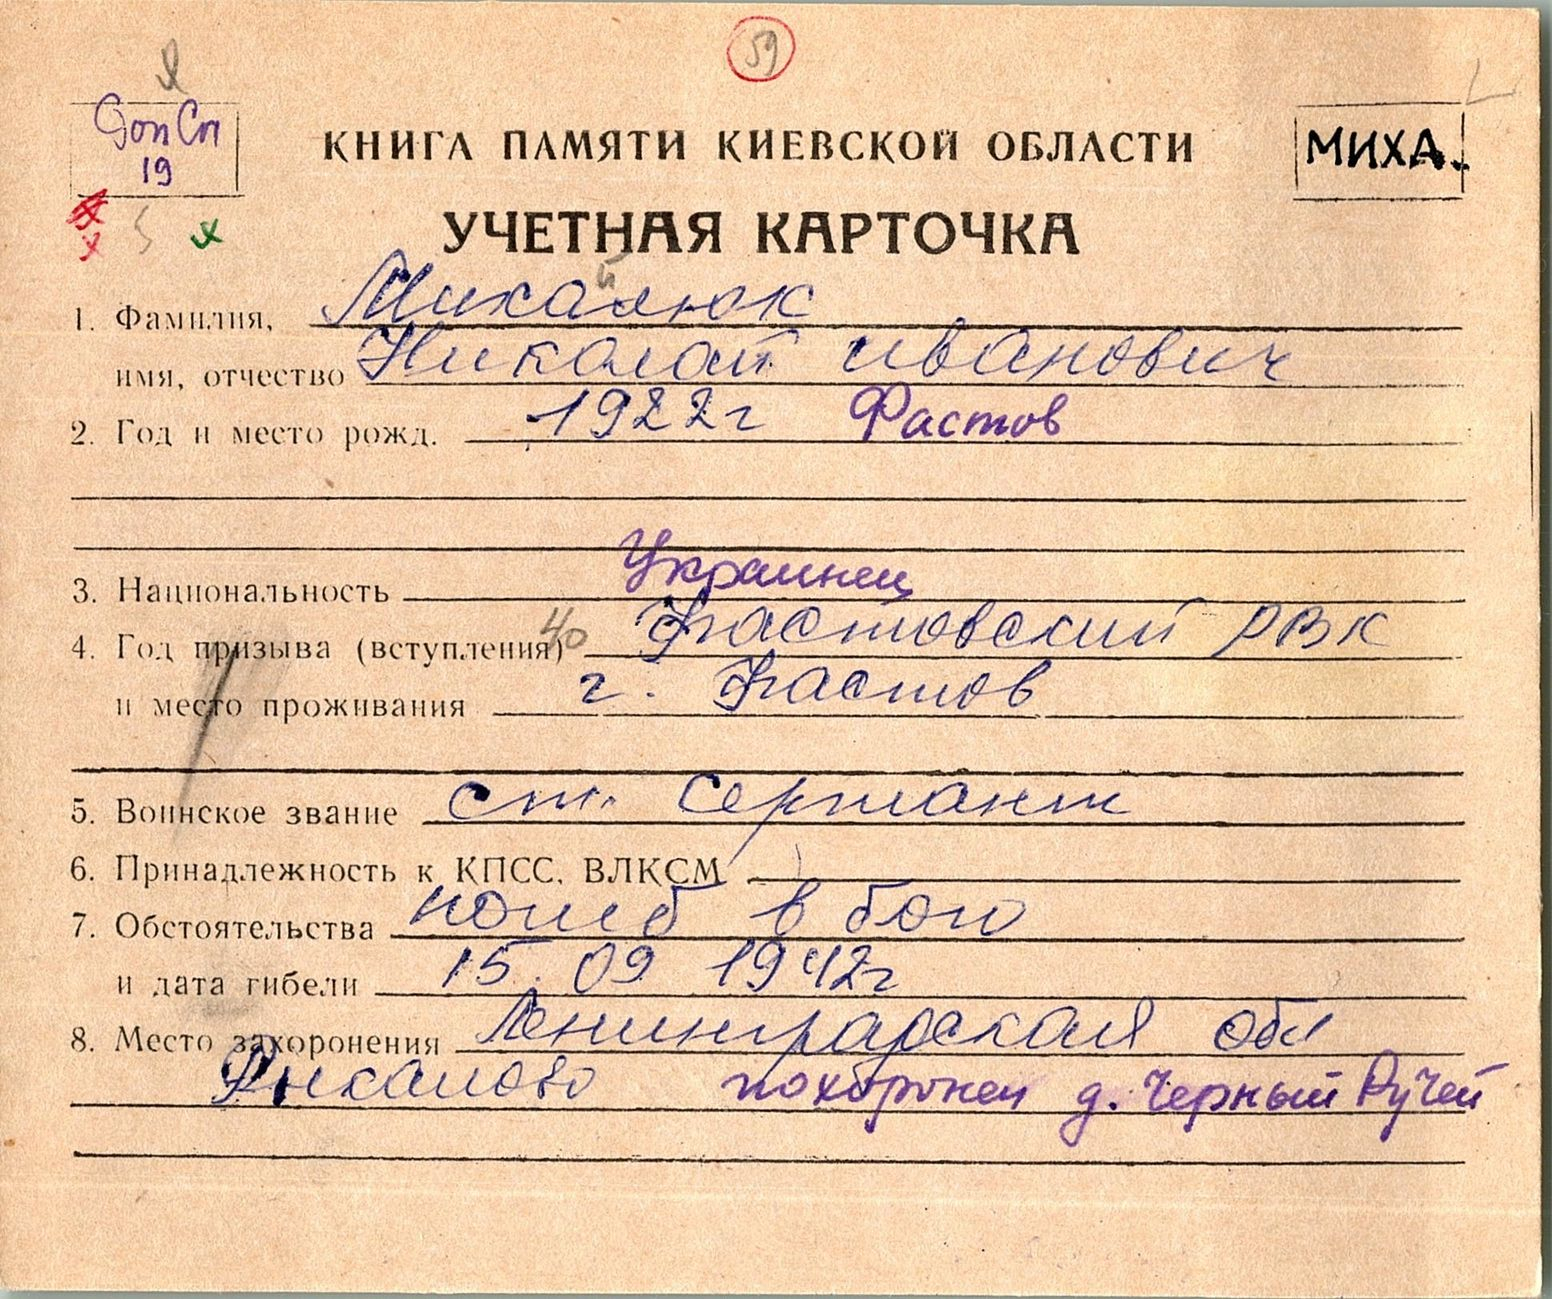 59
Доп Сп
19
КНИГА ПАМЯТИ КИЕВСКОЙ ОБЛАСТИ
МИХА.
УЧЕТНАЯ КАРТОЧКА
1. Фамилия, Михайлюк
имя, отчество Николай Иванович
2. Год и место рожд. 1922 г Фастов
3. Национальность Украинец
4. Год призыва (вступления) 40 Фастовский РВК
и место проживания г. Фастов
5. Воинское звание ст. Сержант
6. Принадлежность к КПСС, ВЛКСМ
7. Обстоятельства погиб в бою
и дата гибели 15.09 1942г
8. Место захоронения Ленинградская обл
похоронен д. Черный Ручей